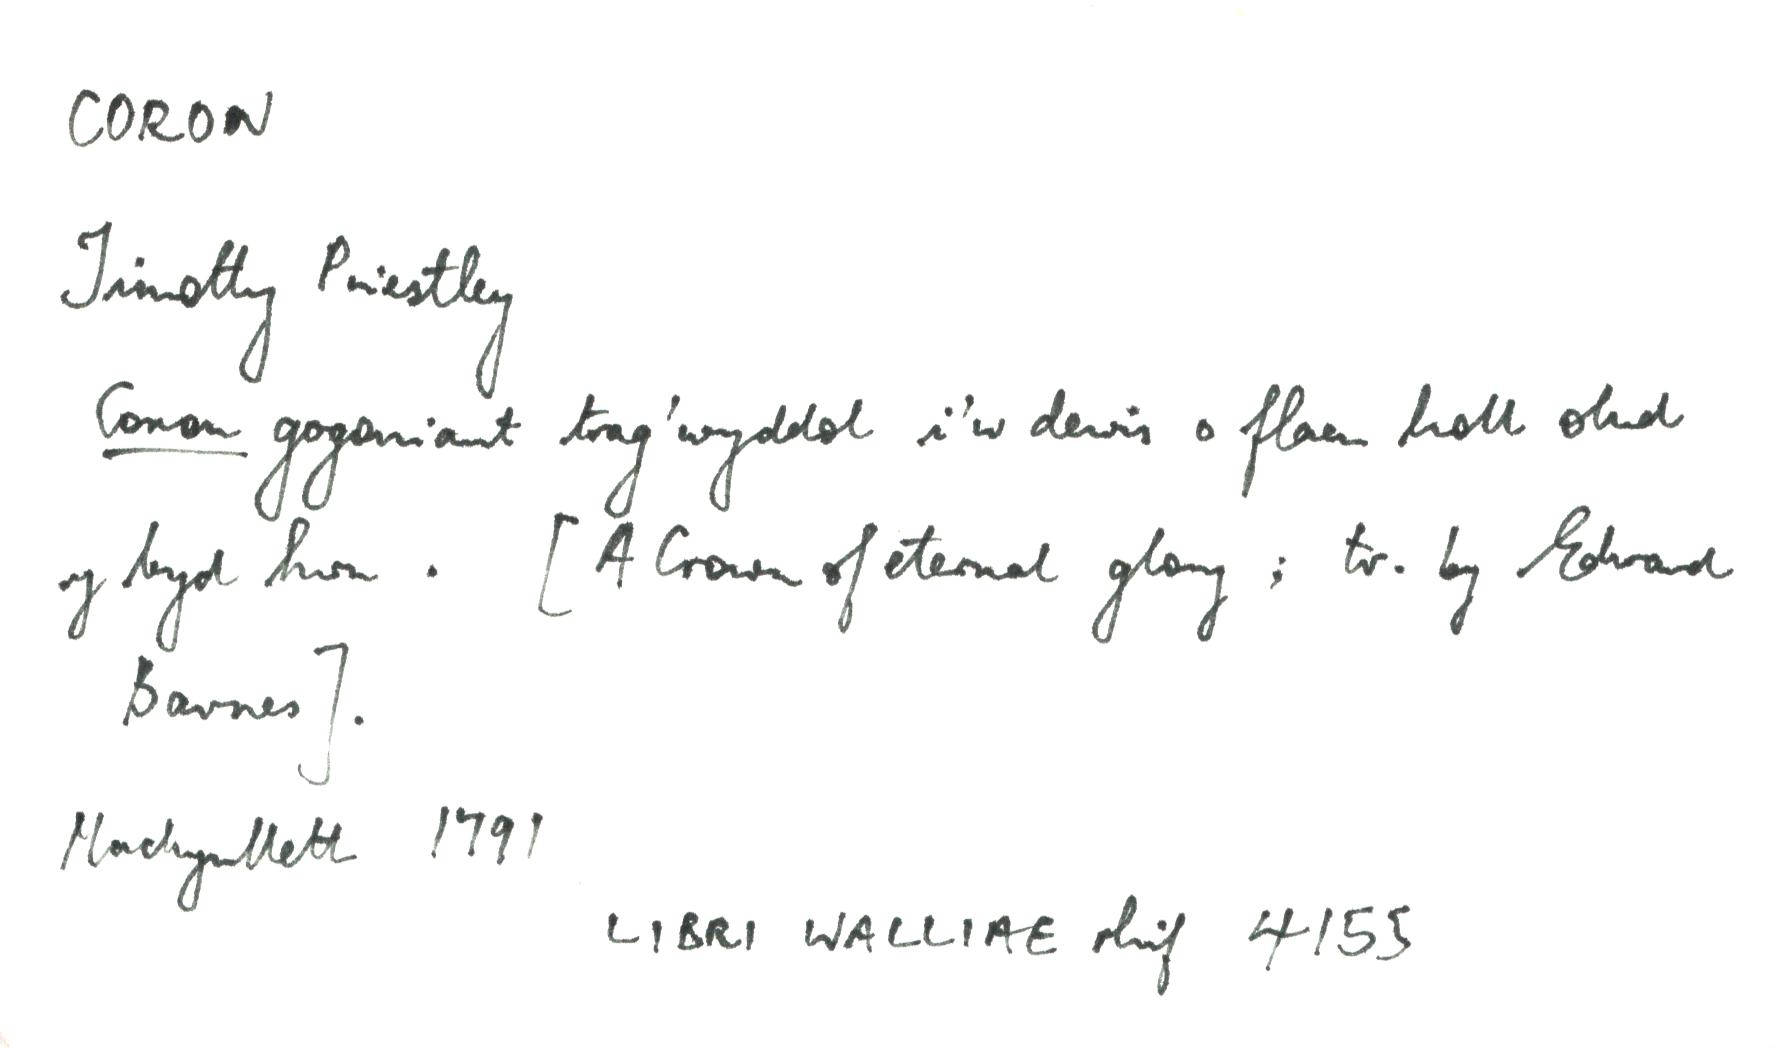 CORON
Timothy Priestley
Coron gogoniant trag'wyddol i'w dewis o flaen holl olud
y byd hwn. [A Crown of eternal glory; tr. by Edward
Barnes].
Machynlleth 1791
LIBRI WALLIAE rhif 4155